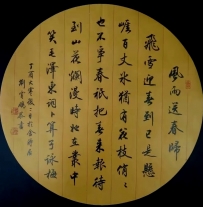 風雨送春歸
飛雪迎春到已是懸
崖百丈冰猶有花枝俏
也不爭春祇把春來報待
到山花爛漫時她在叢中
笑毛澤東詞卜算子詠梅
丁酉大寒